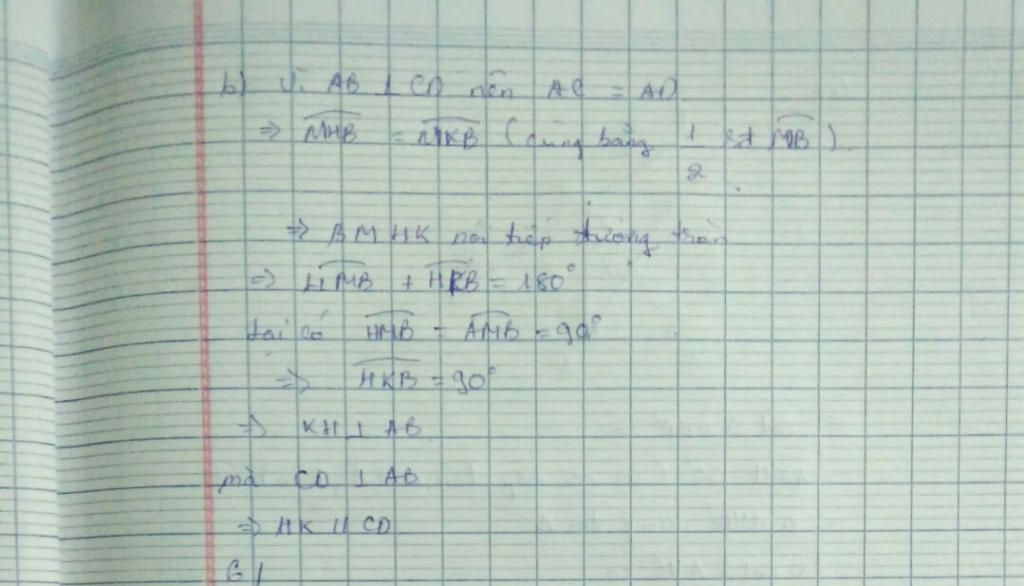 b) Vì AB ⊥ CD nên AC = AD
=> MHB = MKB (cùng bằng 1/2 sđ MB)
=> BMHK nội tiếp đường tròn
=> HMB + HKB = 180°
Lại có HMB = AMB = 90°
=> HKB = 90°
=> KH ⊥ AB
mà CD ⊥ AB
=> HK // CD